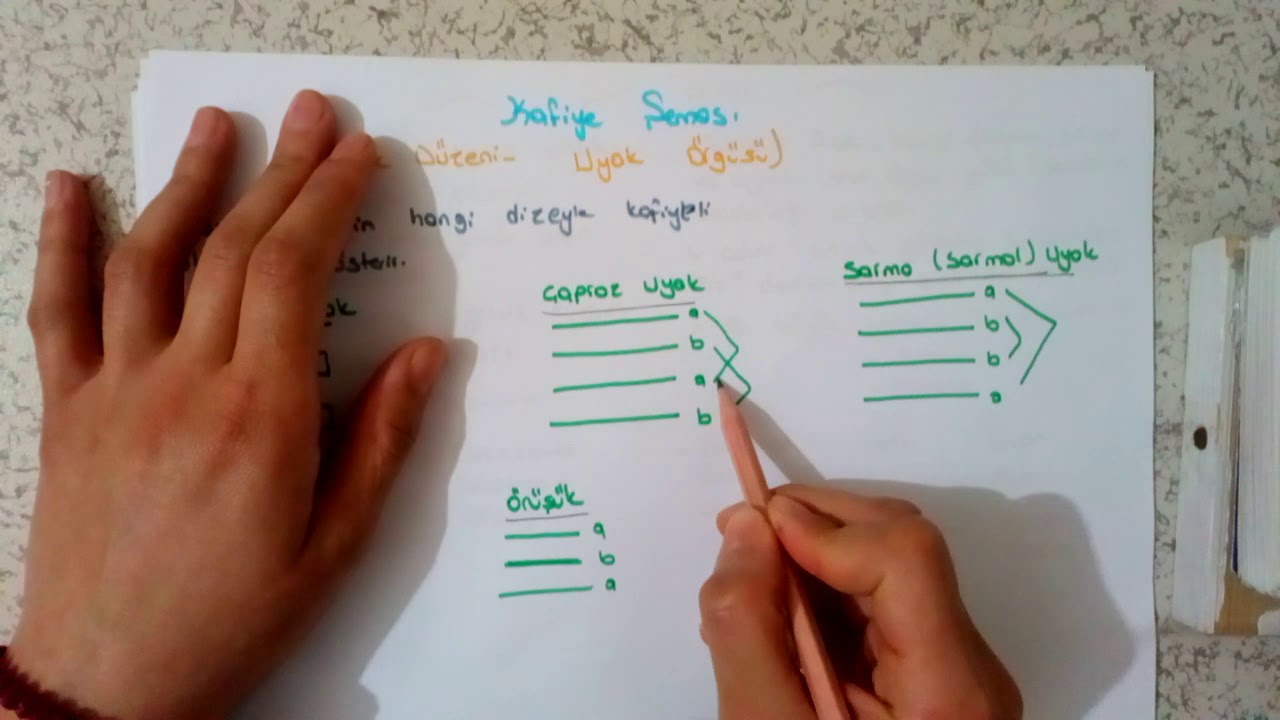 Kafiye Şeması
Düzeni- Uyak Örgüsü)
in hangi dizeyle kafiyeli
österir.
ak
Çapraz Uyak
a
b
a
b
Sarma (Sarmal) Uyak
a
b
b
a
Örüşük
a
b
a